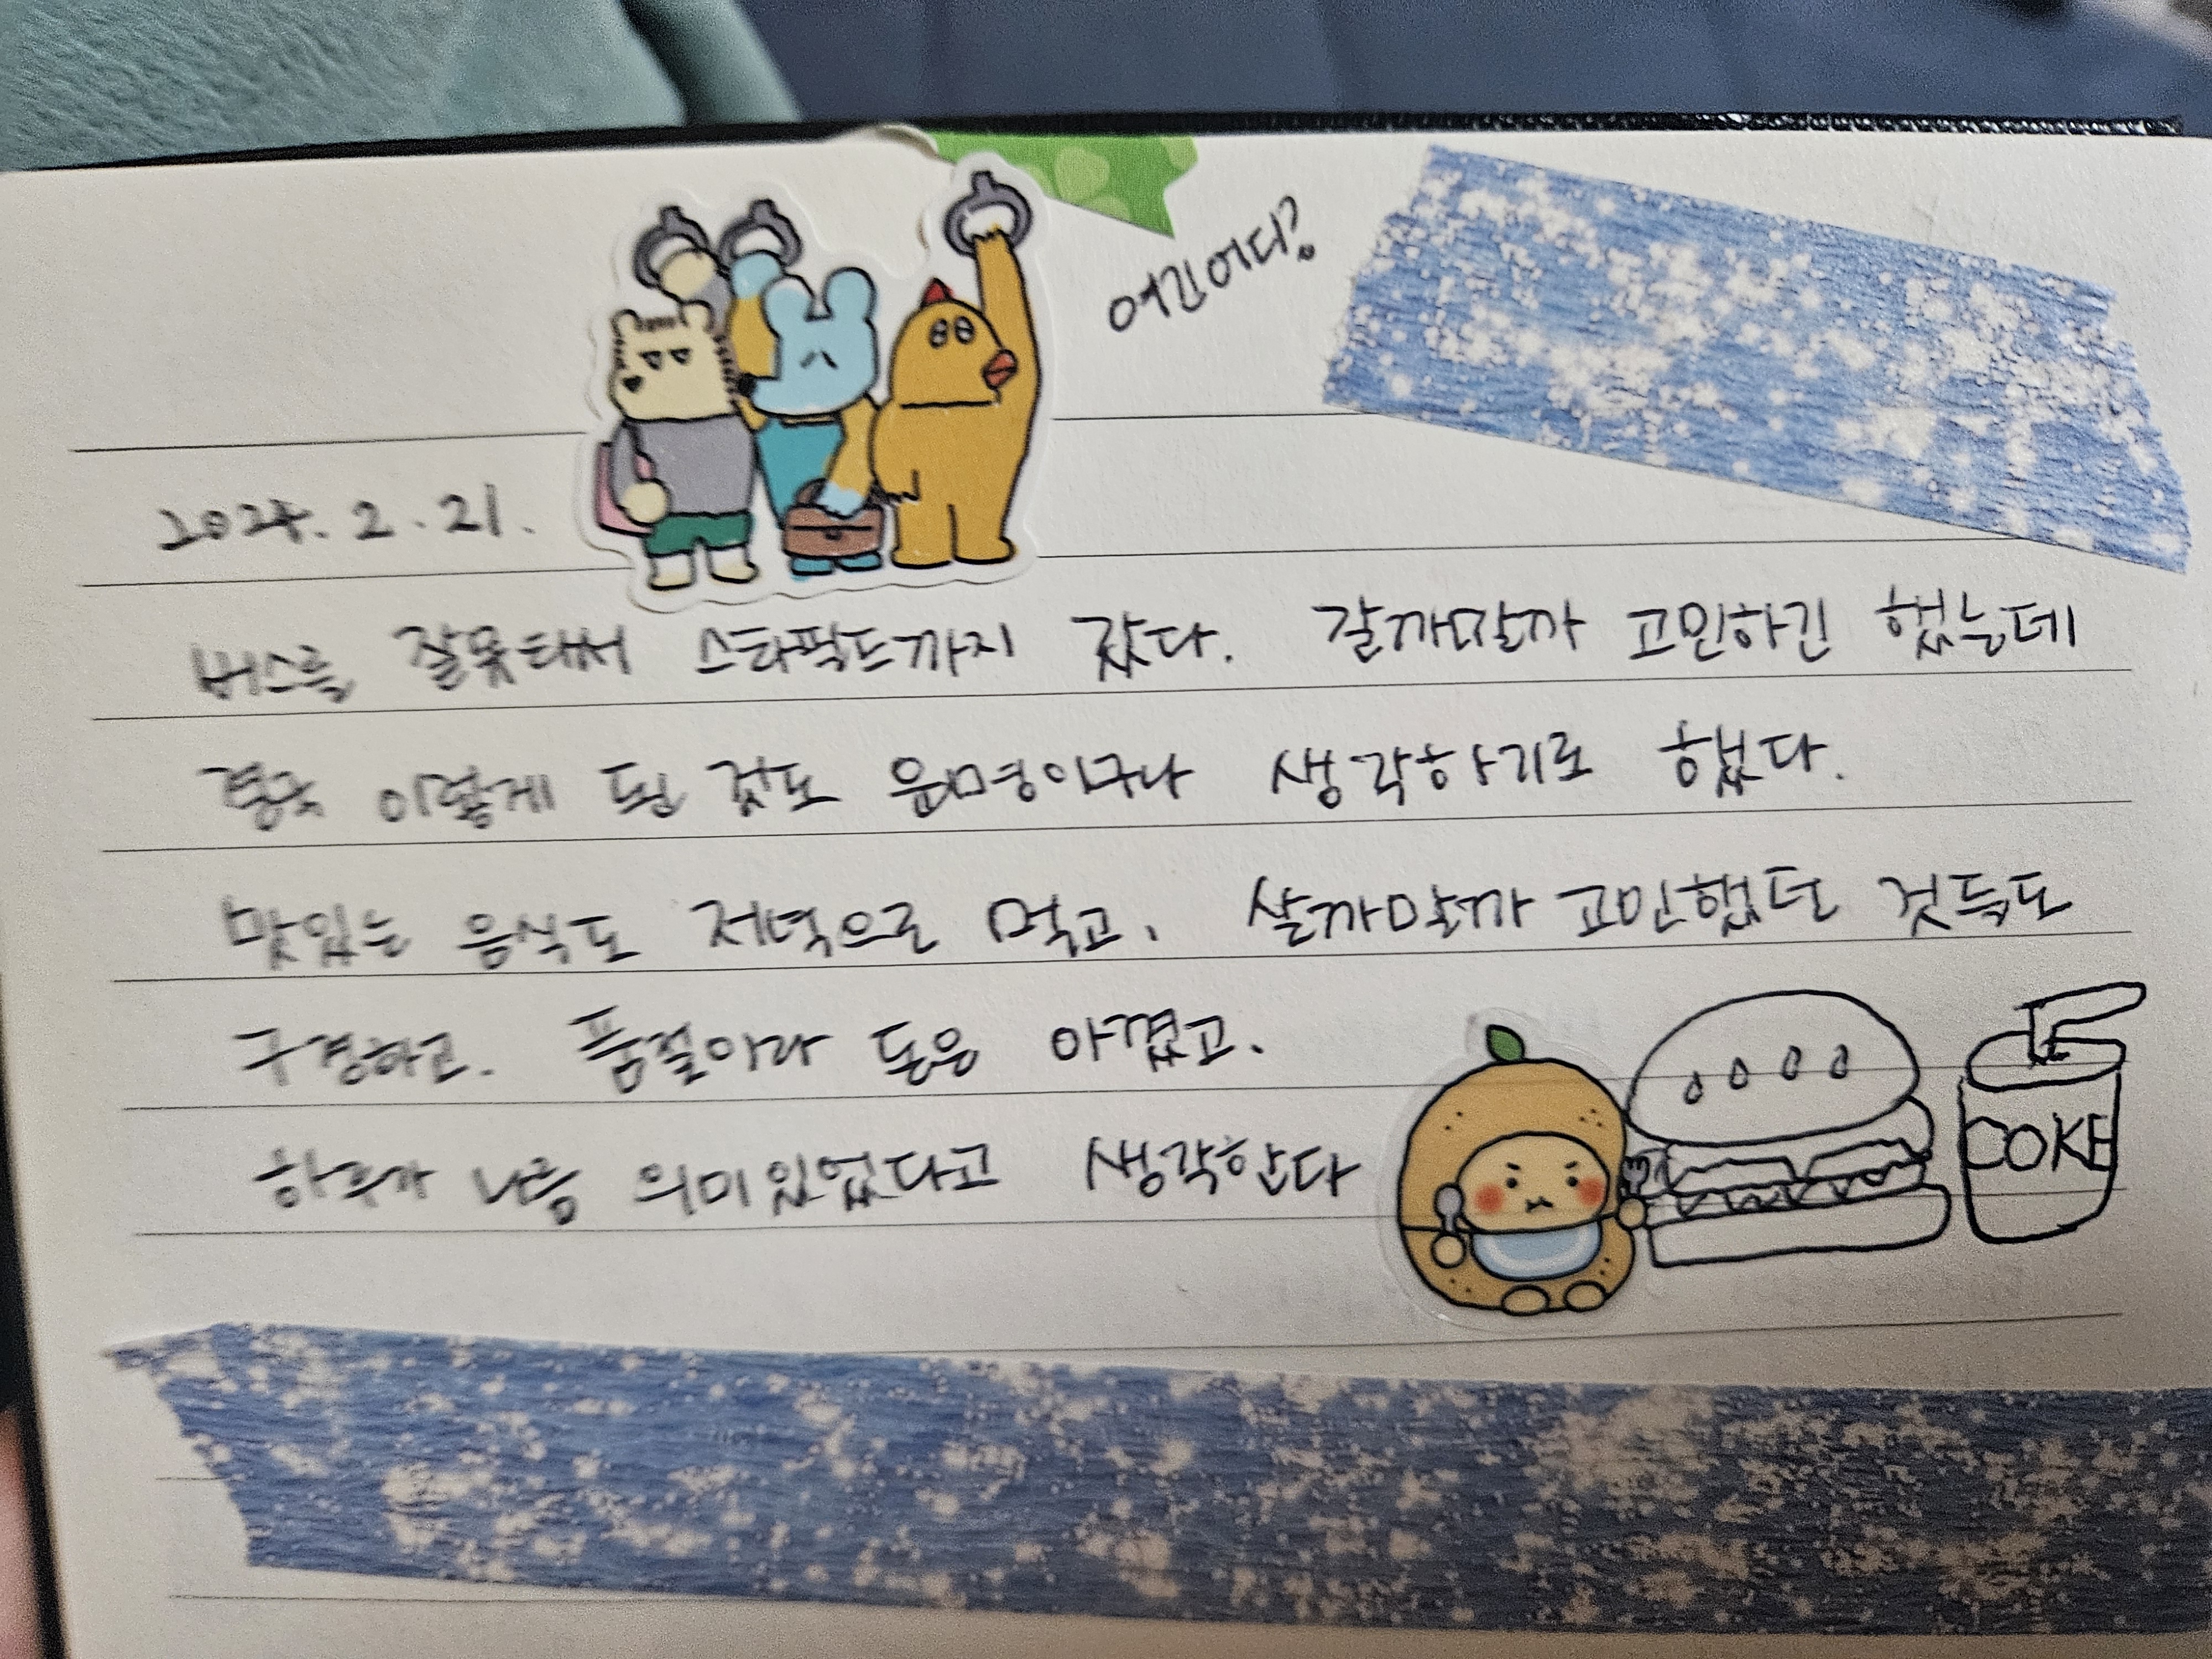 여긴어디?
2024. 2. 21.
버스를 잘못타서 스타필드까지 갔다. 갈까말까 고민하긴 했는데
결국 이렇게 된 것도 운명이구나 생각하기로 했다.
맛있는 음식도 저녁으로 먹고, 살까말까 고민했던 것들도
구경하고. 품절이라 돈은 아꼈고.
하루가 나름 의미있었다고 생각한다
COKE